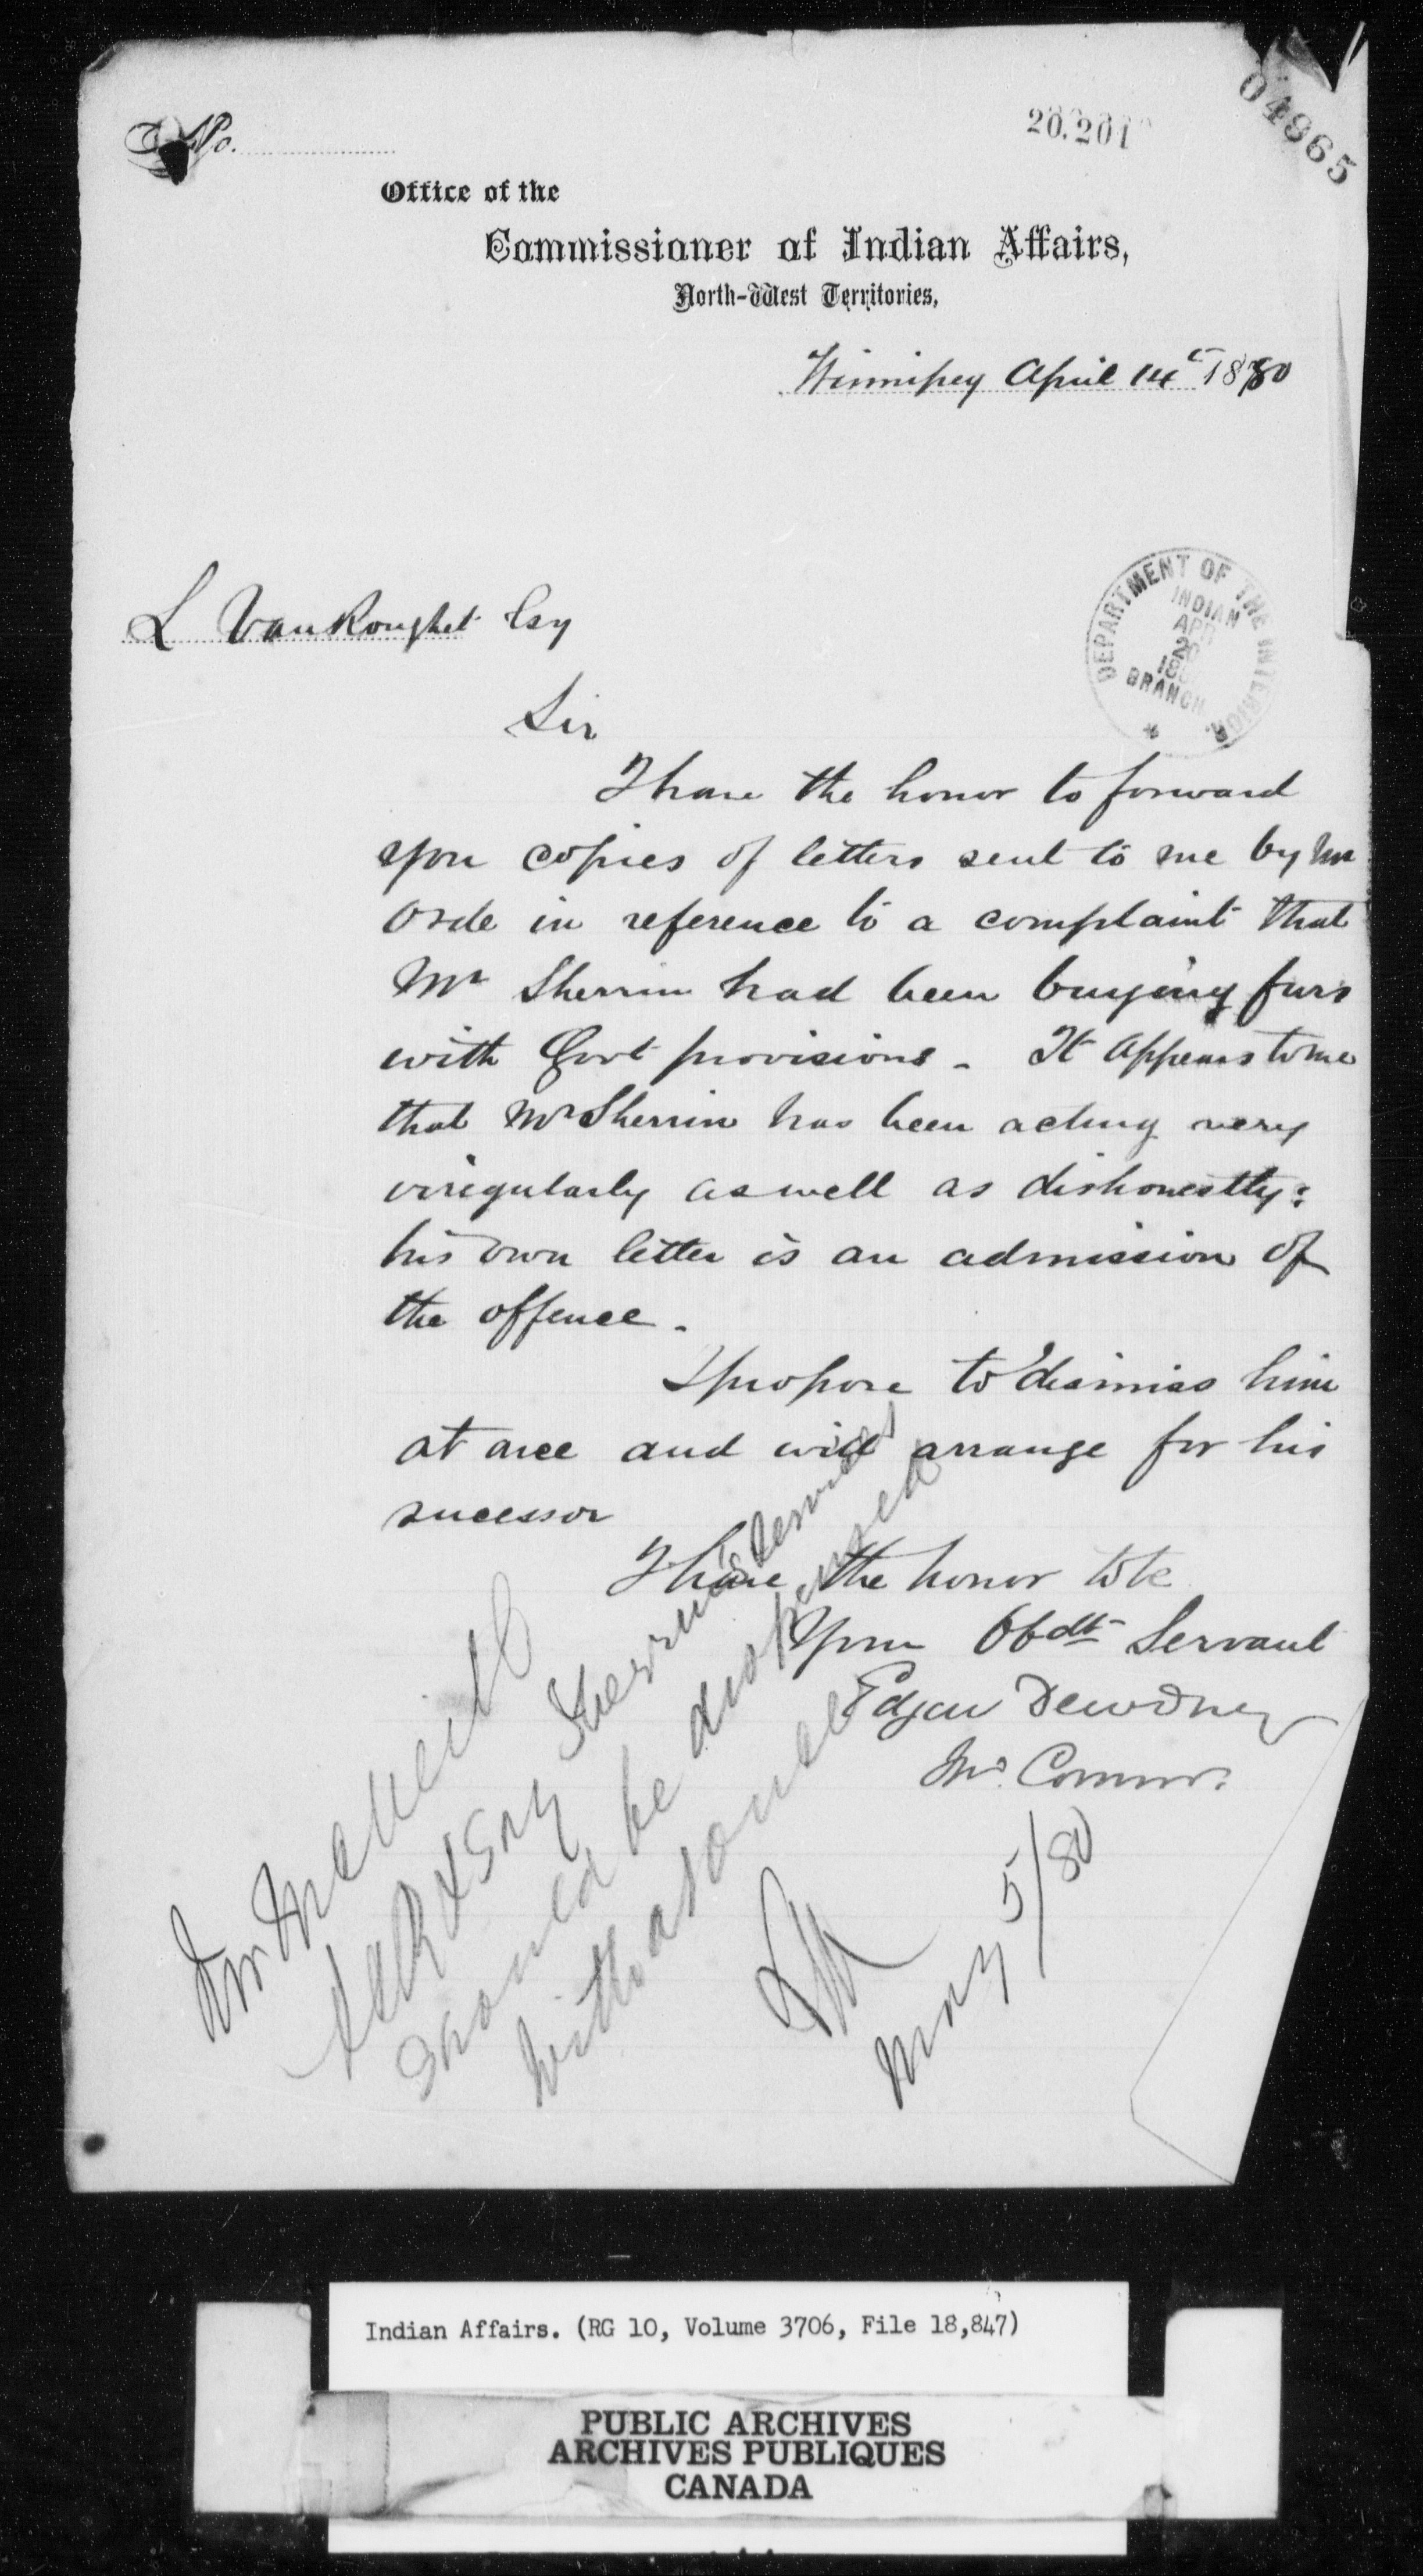 No.
20.201
04965
Office of the
Commissioner of Indian Affairs,
North-West Territories,
Winnipeg April 14th 1880
L VanKoughet Esq
DEPARTMENT OF THE INTERIOR.
INDIAN
APR
20
188
BRANCH
Sir
I have the honor to forward
you copies of letters sent to me by Mr
Orde in reference to a complaint that
Mr Sherrin had been buying furs
with Govt provisions - It appears to me
that Mr Sherrin has been acting very
irregularly as well as dishonestly:
his own letter is an admission of
the offence.
I propose to dismiss him
at once and will arrange for his
sucessor
I have the honor to be
Your Obdt Servant
Edgar Dewdney
In. Commr.
Mr McNeill
Ack & say Sherrin's services
should be dispensed
with at once
LVK
May 5/80
Indian Affairs. (RG 10, Volume 3706, File 18,847)
PUBLIC ARCHIVES
ARCHIVES PUBLIQUES
CANADA